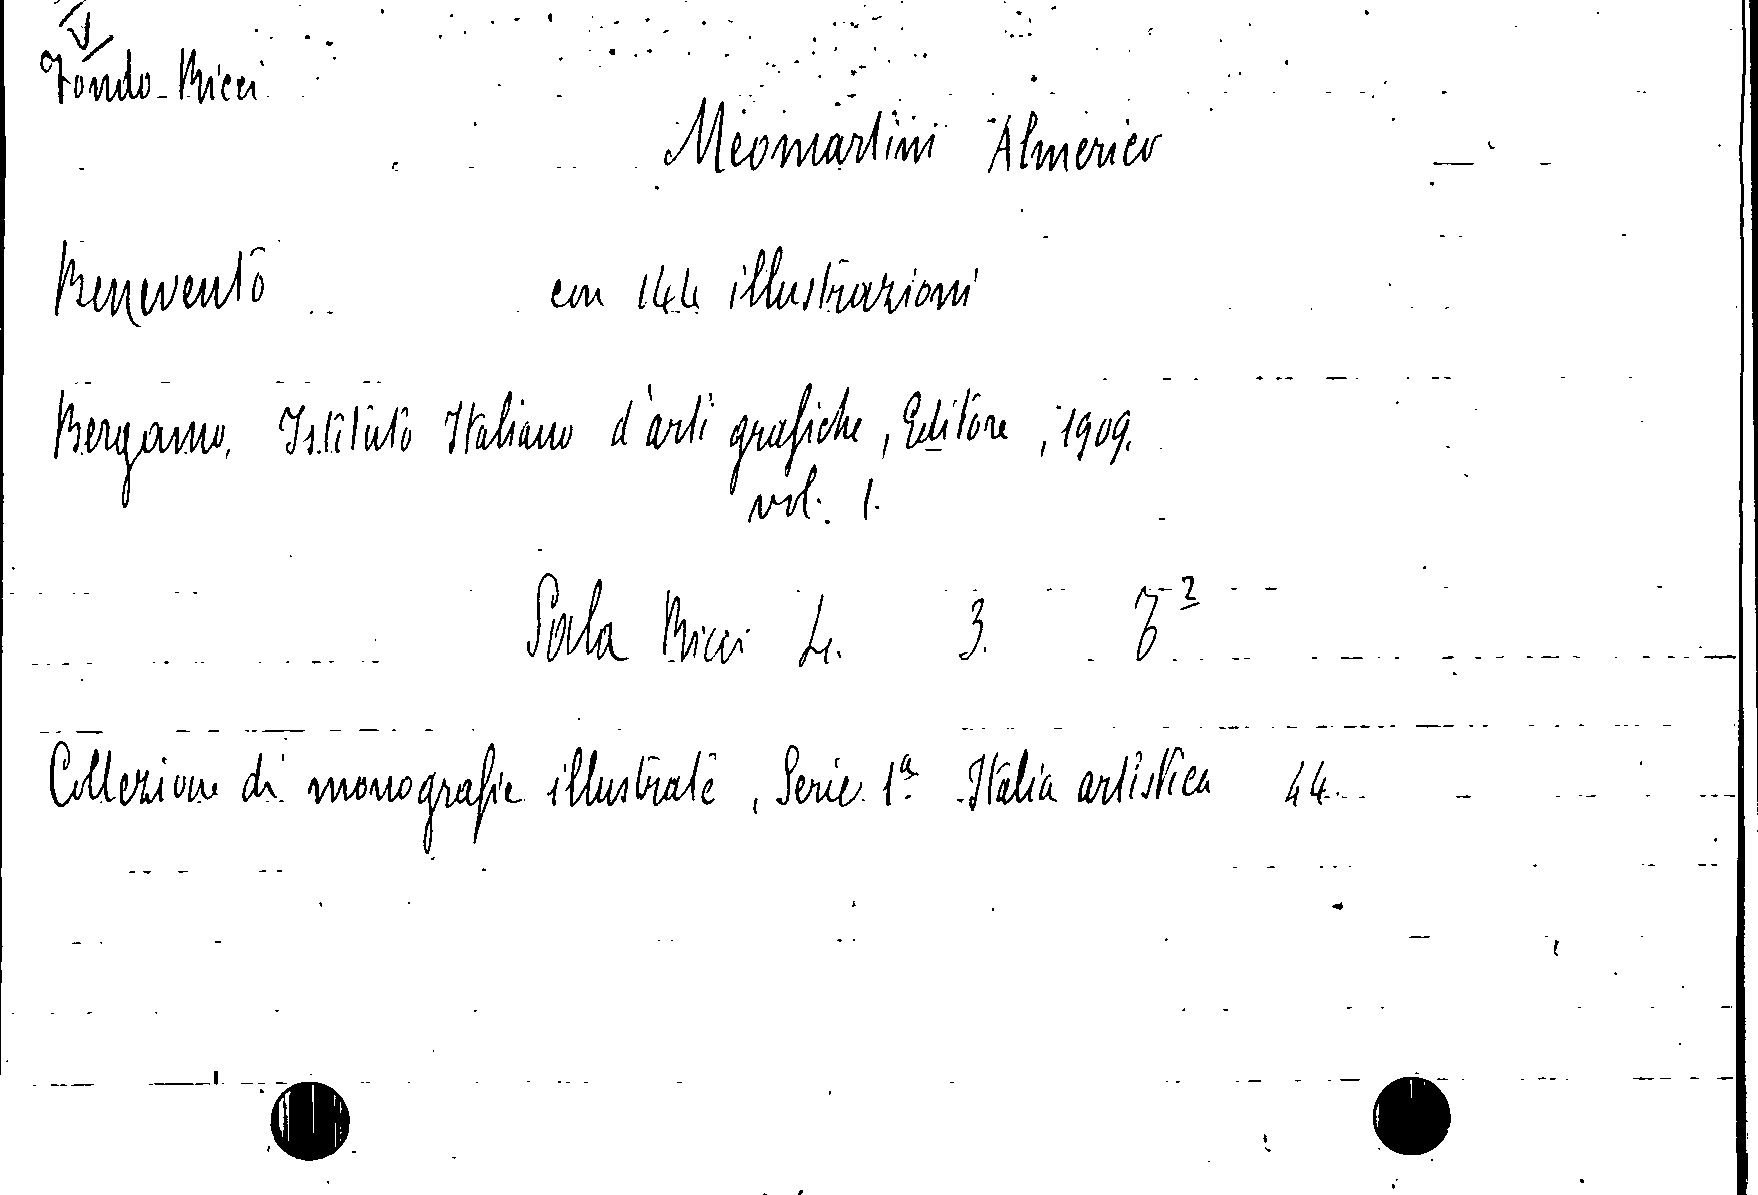 Fondo Ricci
Meomartini Almerico
Benevento con 144 illustrazioni
Bergamo, Istituto Italiano d'arti grafiche, Editore, 1909.
vol. 1.
Sala Ricci 4. 3.
Collezione di monografie illustrate, Serie 1ª Italia artistica 44.